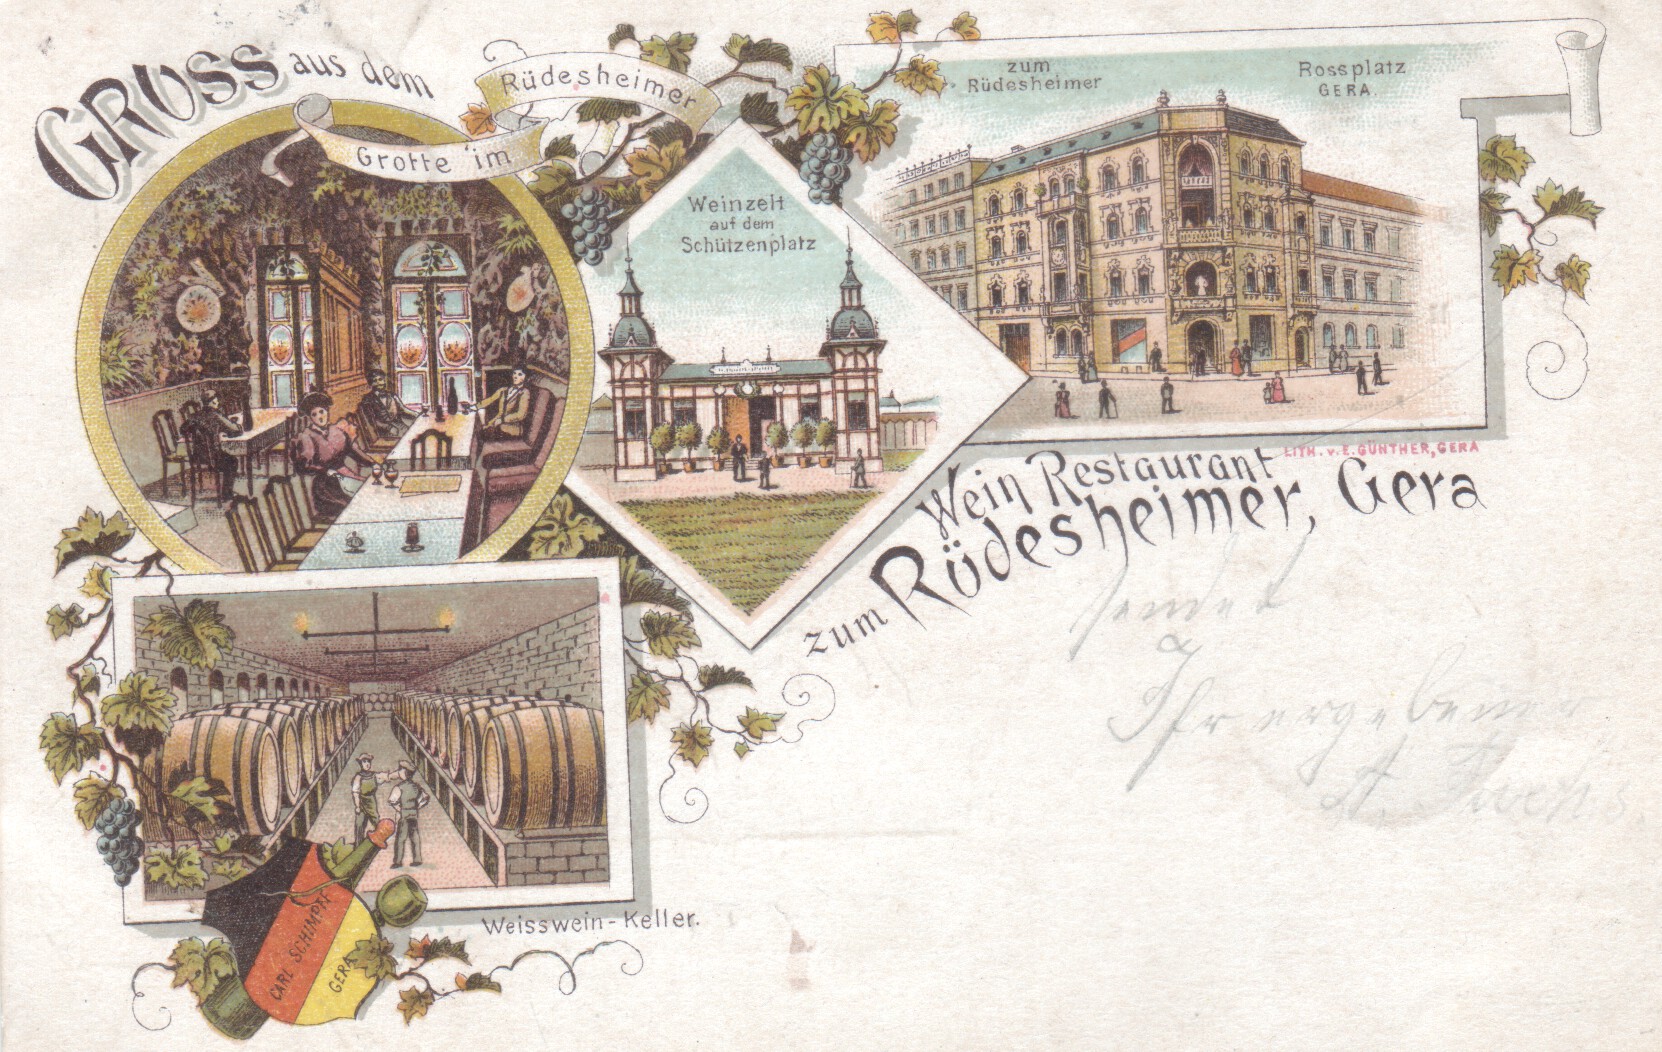 GRUSS aus dem
Rüdesheimer
Grotte im
Weinzelt
auf dem
Schützenplatz
zum
Rüdesheimer
Rossplatz
GERA.
LITH. v. E. GÜNTHER, GERA
Wein Restaurant
zum Rüdesheimer, Gera
sendet
Ihr ergebener
A.
Weisswein-Keller.
CARL SCHIMPF
GERA